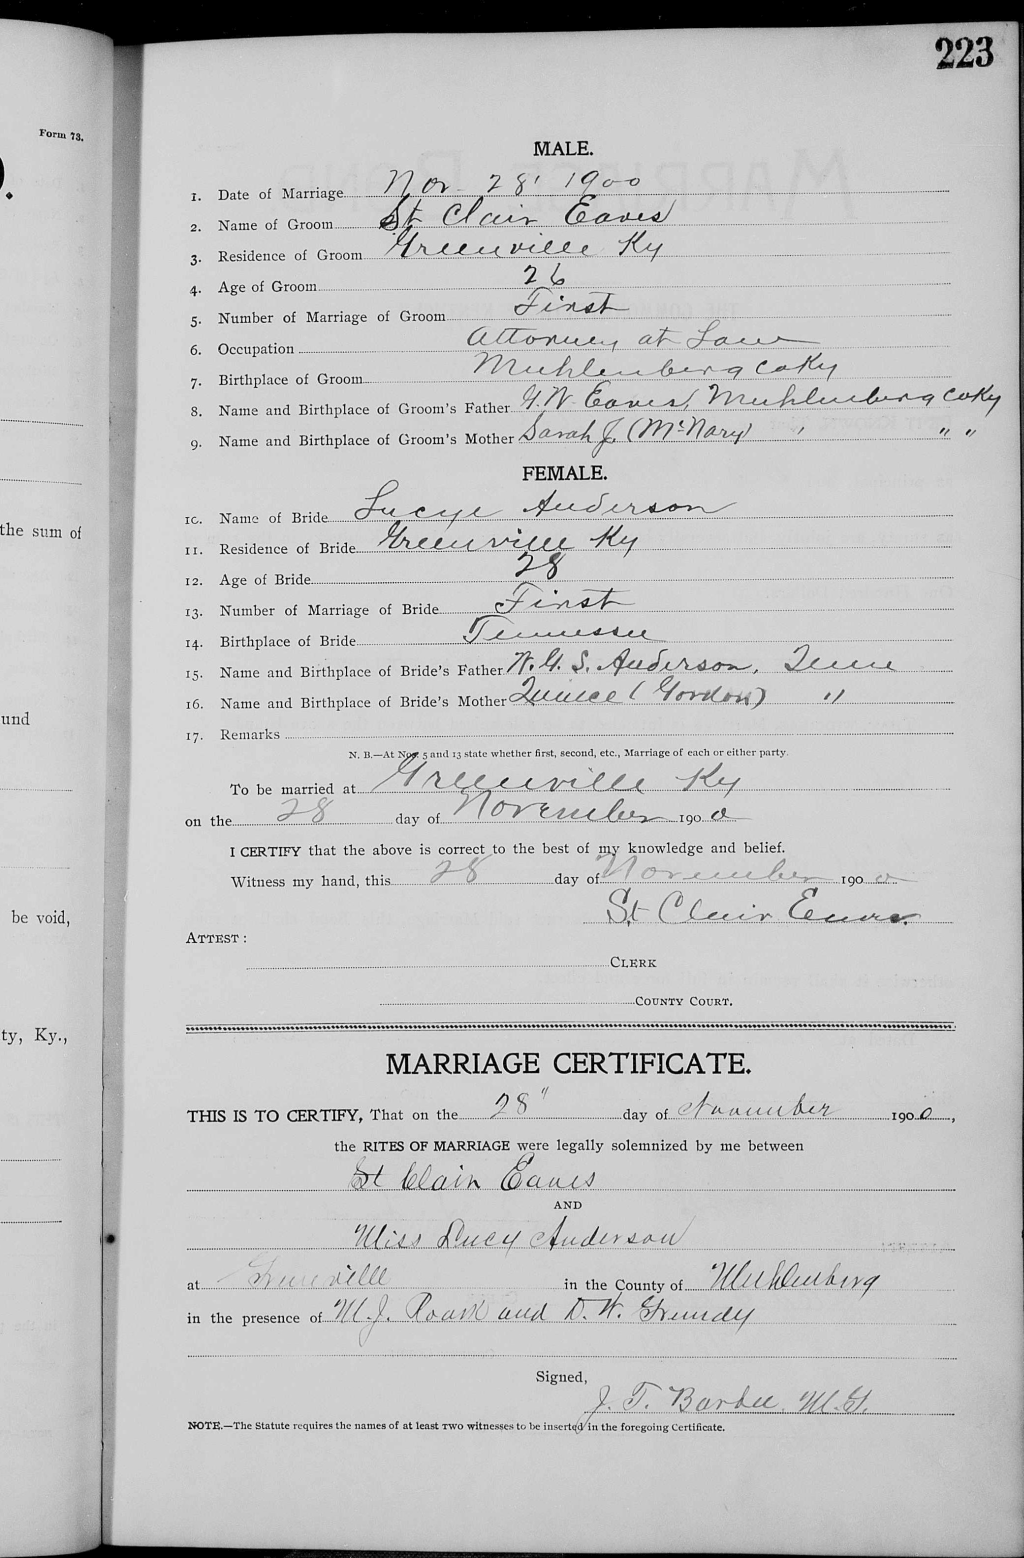 223
Form 73.
).
MALE.
1. Date of Marriage Nov 28' 1900
2. Name of Groom St Clair Eaves
3. Residence of Groom Greenville Ky
4. Age of Groom 26
5. Number of Marriage of Groom First
6. Occupation Attorney at Law
7. Birthplace of Groom Muhlenberg Co Ky
8. Name and Birthplace of Groom's Father G.W. Eaves, Muhlenberg Co Ky
9. Name and Birthplace of Groom's Mother Sarah J. (McNary) ' " "
FEMALE.
10. Name of Bride Lucye Anderson
the sum of
11. Residence of Bride Greenville Ky
12. Age of Bride 28
13. Number of Marriage of Bride First
14. Birthplace of Bride Tennessee
15. Name and Birthplace of Bride's Father W.G.S. Anderson, Tenn
16. Name and Birthplace of Bride's Mother (Gordon) "
und
17. Remarks
N. B.—At Nos. 5 and 13 state whether first, second, etc., Marriage of each or either party.
To be married at Greenville Ky
on the 28 day of November 1900
I CERTIFY that the above is correct to the best of my knowledge and belief.
Witness my hand, this 28 day of November 1900
be void,
St Clair Eaves
ATTEST:
CLERK
COUNTY COURT.
ty, Ky.,
MARRIAGE CERTIFICATE.
THIS IS TO CERTIFY, That on the 28" day of November 1900,
the RITES OF MARRIAGE were legally solemnized by me between
St Clair Eaves
AND
Miss Lucy Anderson
at Greenville in the County of Muhlenberg
in the presence of M.J. Roark and D.W. Grundy
Signed,
J. T. Barbee M.G.
NOTE.—The Statute requires the names of at least TWO witnesses to be inserted in the foregoing Certificate.